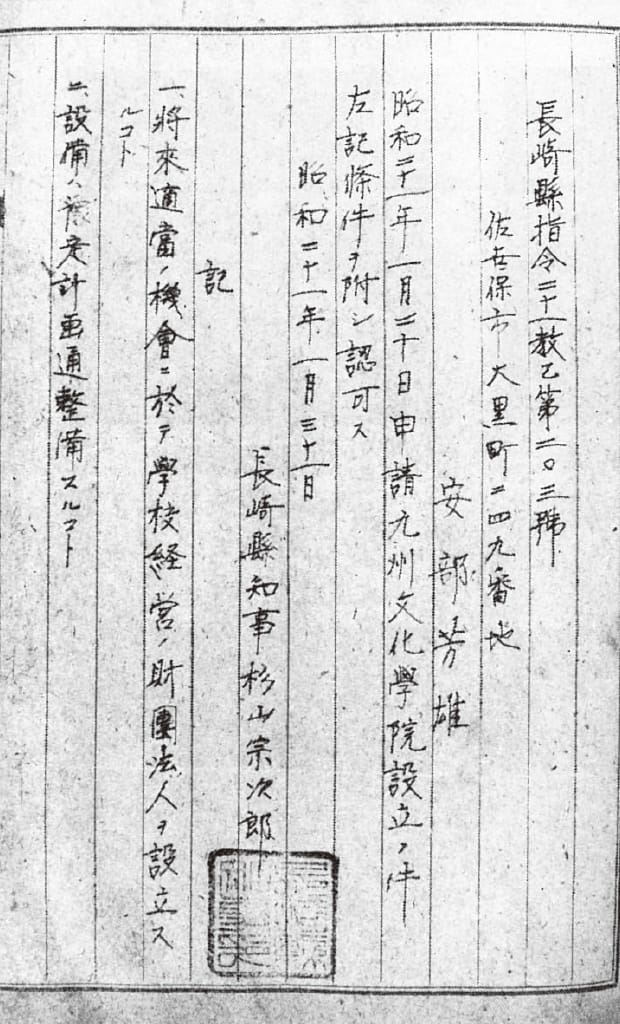 長崎縣指令二十一教乙第二〇三號
佐世保市大黒町二四九番地
安部芳雄
昭和二十一年一月二十日申請九州文化學院設立ノ件
左記條件ヲ附シ認可ス
昭和二十一年一月三十一日
長崎縣知事杉山宗次郎
記
一、將來適當ノ機會ニ於テ學校経営ノ財團法人ヲ設立ス
ルコト
二、設備ハ豫定計画通整備スルコト